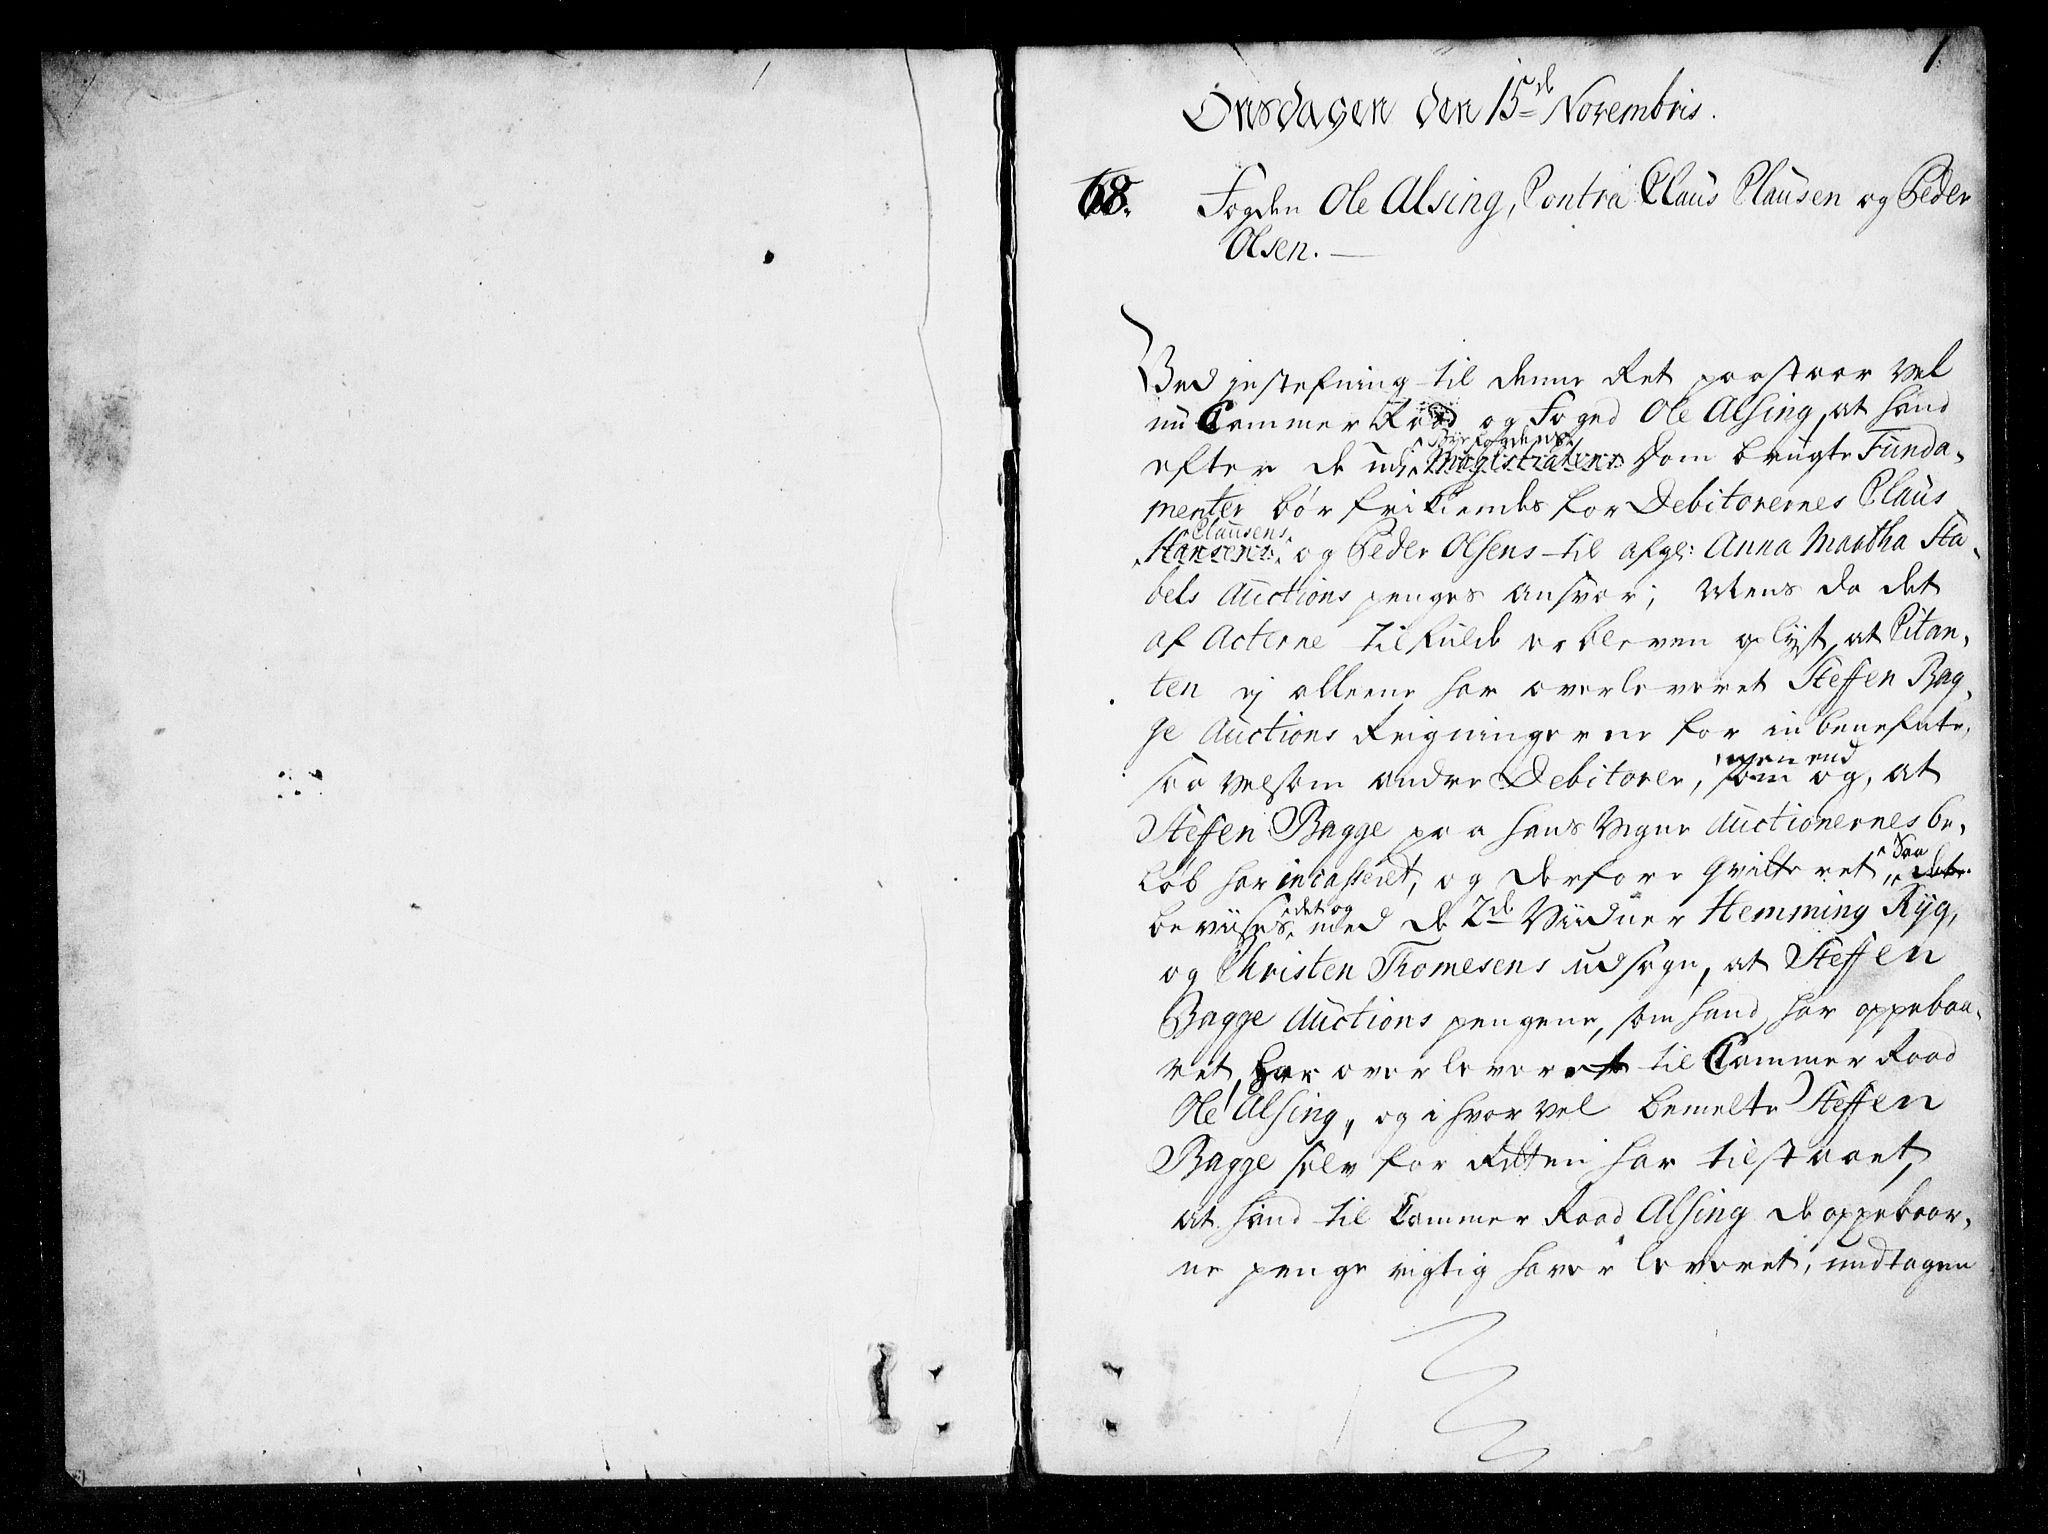 1.
Onsdagen den 15de Novembris.
68. Fogden Ole Alsing, Contra Claus Clausen og Peder
Olsen. —
Ved jestefning til denne Ret paastaar vel
nu Cammer Raad og Foged Ole Alsing, at hand
Byefogdens
efter de ud, Magistratens Dom brugte Funda-
menter bør frikiendes for Debitorernes Claus
Clausens
Hansens og Peder Olsens til afgl: Anna Martha Sta-
bels Auctions penges ansvar; Mens da det
af Acterne tilfulde er bleven oplyst, at Citan-
ten ej alleene har overleveret Steffen Bag-
ge Auctions Reigningerne for inbenefnte,
men end
saa velsom andre Debitorer, som og, at
Steffen Bagge paa hans Vegne Auctionernes be-
løb har incasseret, og derfore qvitteret
saa
dette
det og
beviises med de 2de Viidner Hemming Ryg,
og Christen Thomesens udsagn, at Steffen
Bagge Auctions pengene, som hand har oppebaa-
ret, har overleveret til Cammer Raad
Ole Alsing, og i hvor vel bemelte Steffen
Bagge selv for Retten har tilstaaet,
at hand til Cammer Raad Alsing de oppebaar-
ne penge rigtig haver leveret, undtagen